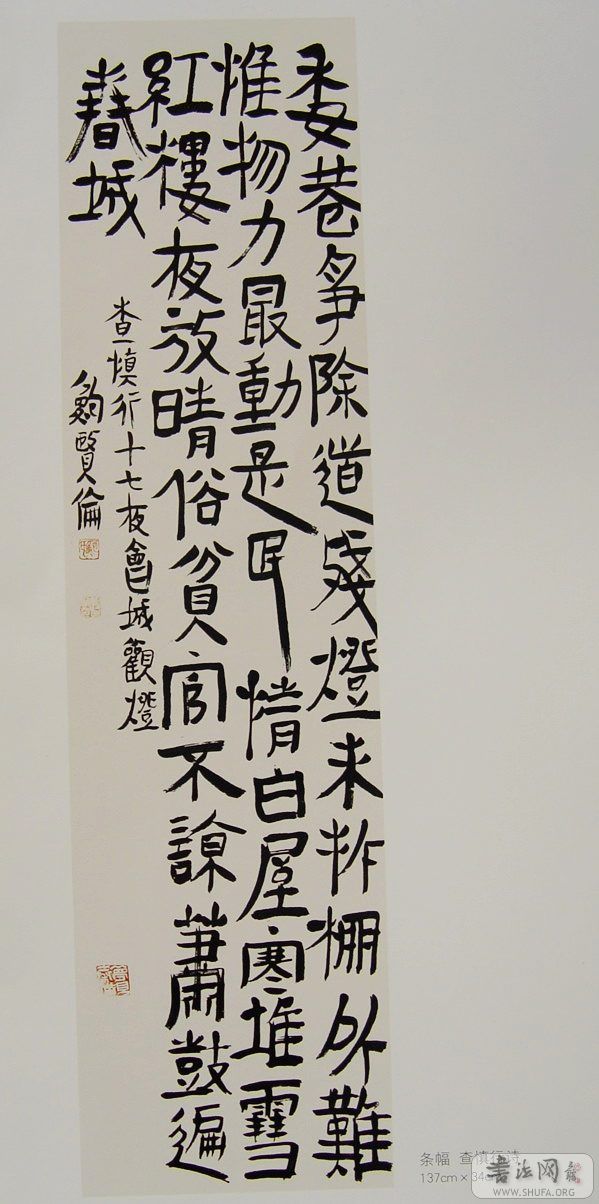 委巷爭除道殘燈未拆棚外難
惟物力最動是民情白屋寒堆雪
紅樓夜放晴俗貧官不諒蕭鼓遍
春城
查慎行十七夜會城觀燈
鮑賢倫
条幅 查慎行诗
137cm×34cm
书法网
WWW.SHUFA.ORG